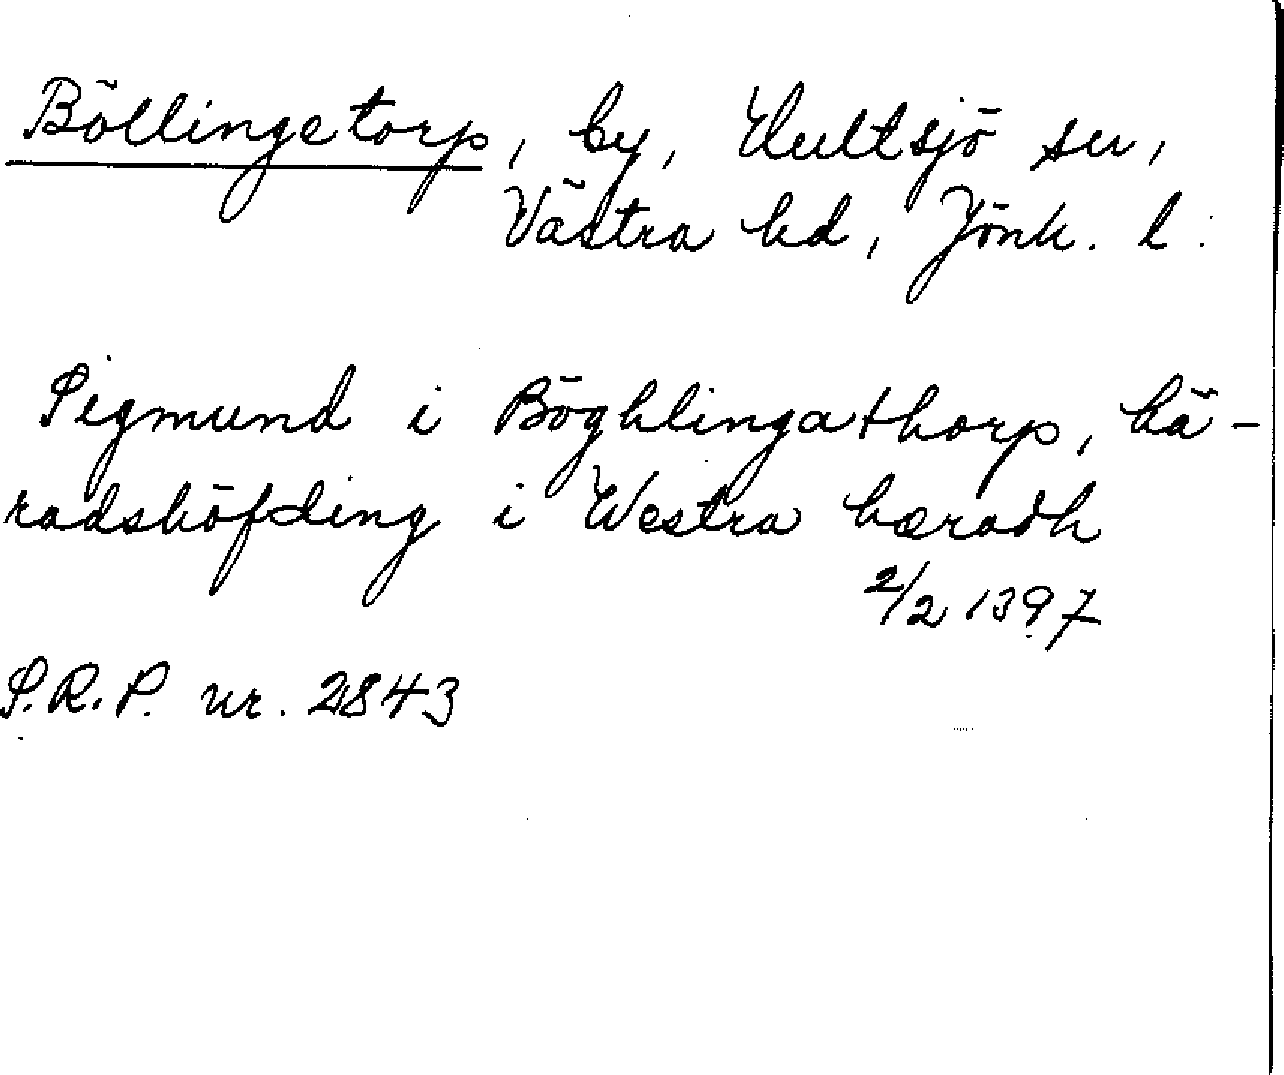 Böllingetorp, by, Hultsjö sn,
Västra hd, Jönk. l.
Sigmund i Böghlingathorp, hä-
radshöfding i Westra hæradh
2/2 1397
S.R.P. nr. 2843